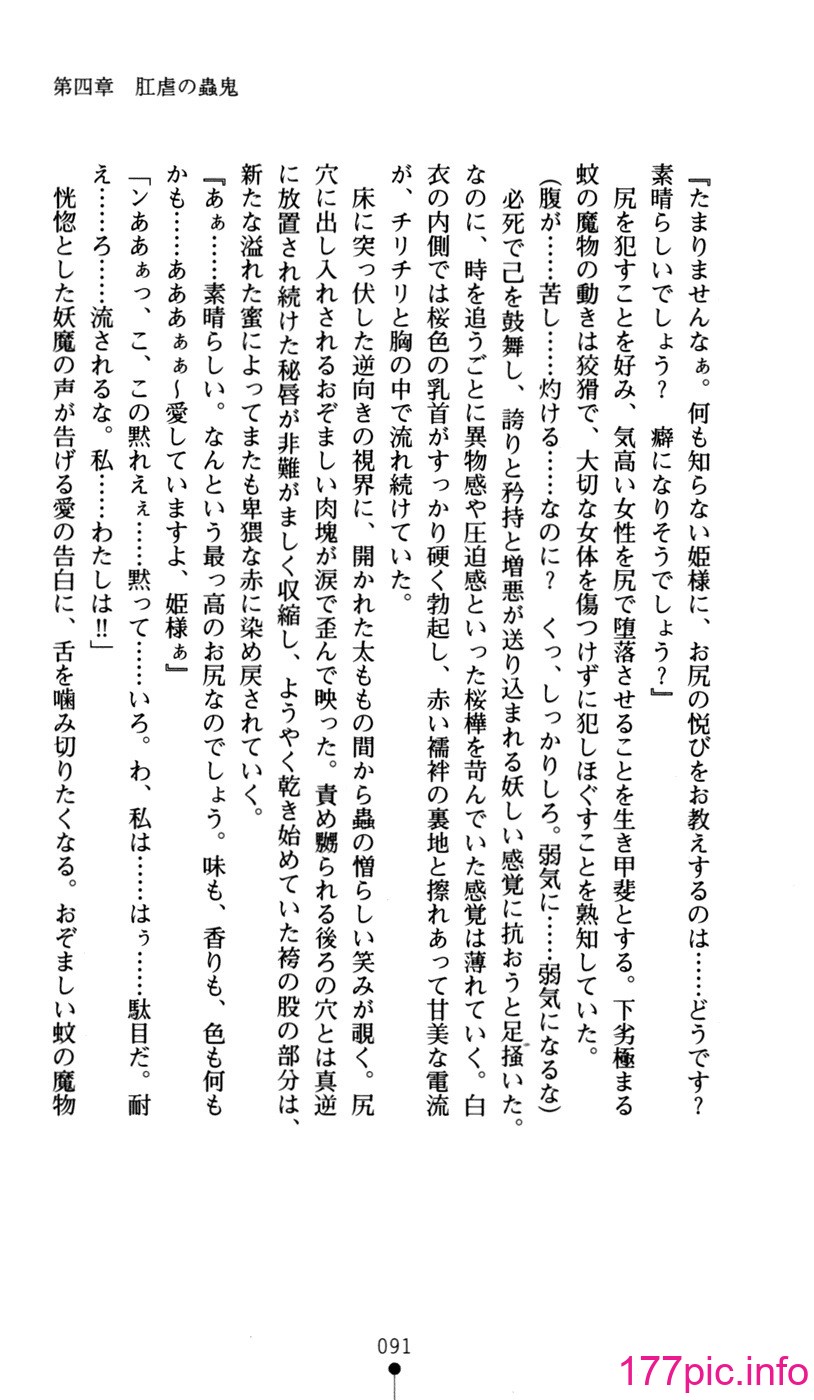 第四章　肛虐の蟲鬼
『たまりませんなぁ。何も知らない姫様に、お尻の悦びをお教えするのは……どうです？
素晴らしいでしょう？　癖になりそうでしょう？』
　尻を犯すことを好み、気高い女性を尻で堕落させることを生き甲斐とする。下劣極まる
蚊の魔物の動きは狡猾で、大切な女体を傷つけずに犯しほぐすことを熟知していた。
（腹が……苦し……灼ける……なのに？　くっ、しっかりしろ。弱気に……弱気になるな）
　必死で己を鼓舞し、誇りと矜持と増悪が送り込まれる妖しい感覚に抗おうと足掻いた。
なのに、時を追うごとに異物感や圧迫感といった桜樺を苛んでいた感覚は薄れていく。白
衣の内側では桜色の乳首がすっかり硬く勃起し、赤い襦袢の裏地と擦れあって甘美な電流
が、チリチリと胸の中で流れ続けていた。
　床に突っ伏した逆向きの視界に、開かれた太ももの間から蟲の憎らしい笑みが覗く。尻
穴に出し入れされるおぞましい肉塊が涙で歪んで映った。責め嬲られる後ろの穴とは真逆
に放置され続けた秘唇が非難がましく収縮し、ようやく乾き始めていた袴の股の部分は、
新たな溢れた蜜によってまたも卑猥な赤に染め戻されていく。
『あぁ……素晴らしい。なんという最っ高のお尻なのでしょう。味も、香りも、色も何も
かも……あああぁぁ～愛していますよ、姫様ぁ』
「ンああぁっ、こ、この黙れえぇ……黙って……いろ。わ、私は……はぅ……駄目だ。耐
え……ろ……流されるな。私……わたしは!!」
　恍惚とした妖魔の声が告げる愛の告白に、舌を噛み切りたくなる。おぞましい蚊の魔物
091
177pic.info